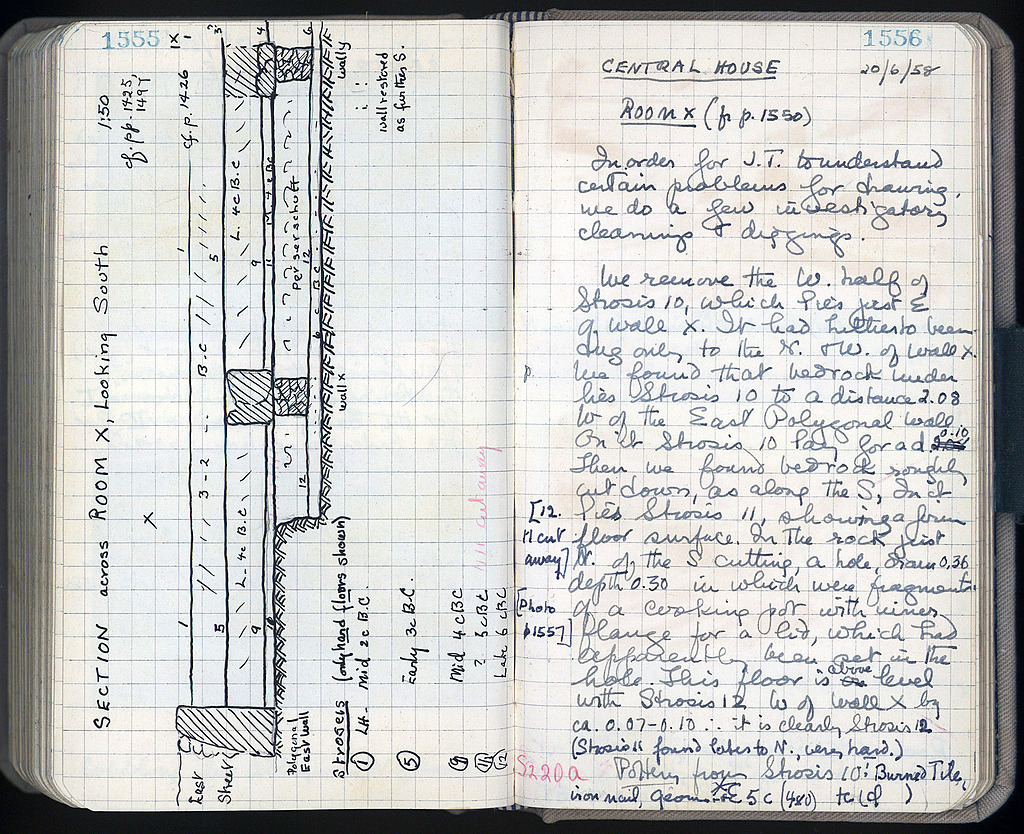 1555
SECTION across ROOM X, Looking South
1:50
cf. pp. 1425
1497
X
IX
cf. p. 1426
1 1 1
3-2 B.C
5 5 3?
L. 4c B.C. L. 4c B.C
9 9 4
10 11 M. 4c BC
Perserschutt
12 12 6
6 c B C
East
Street
Polygonal
East wall
wall x
wall y
wall restored
as further S.
Stroses (only hard floors shown)
① LH- Mid 2c B.C.
⑤ Early 3c B.C.
⑨ Mid 4 c BC
⑪ ? 5 c BC
⑫ Late 6 c BC
11 cut away
1556
CENTRAL HOUSE 20/6/58
ROOM X (fr p. 1550)
In order for J.T. to understand
certain problems for drawing,
we do a few investigatory
cleanings & diggings.
We remove the W. half of
Strosis 10, which lies just E
of wall X. It had hitherto been
dug only to the N. & W. of wall X.
We found that bedrock under
lies Strosis 10 to a distance 2.08
W of the East Polygonal wall.
On it Strosis 10 lay for a d 0.10
Then we found bedrock roughly
cut down, as along the S, In it
lies Strosis 11, showing a firm
[12.
11 cut
away]
floor surface. In the rock just
N. of the S cutting, a hole, diam 0.36
depth 0.30 in which were fragments
[Photo
p1557]
of a cooking pot with inner
flange for a lid, which had
apparently been set in the
hole. This floor is above level
with Strosis 12 W of wall X by
ca. 0.07-0.10 ∴ it is clearly Strosis 12
(Strosis 11 found later to N., very hard.)
S220a
Pottery from Strosis 10: Burned Tile,
iron nail, 5 c (480)